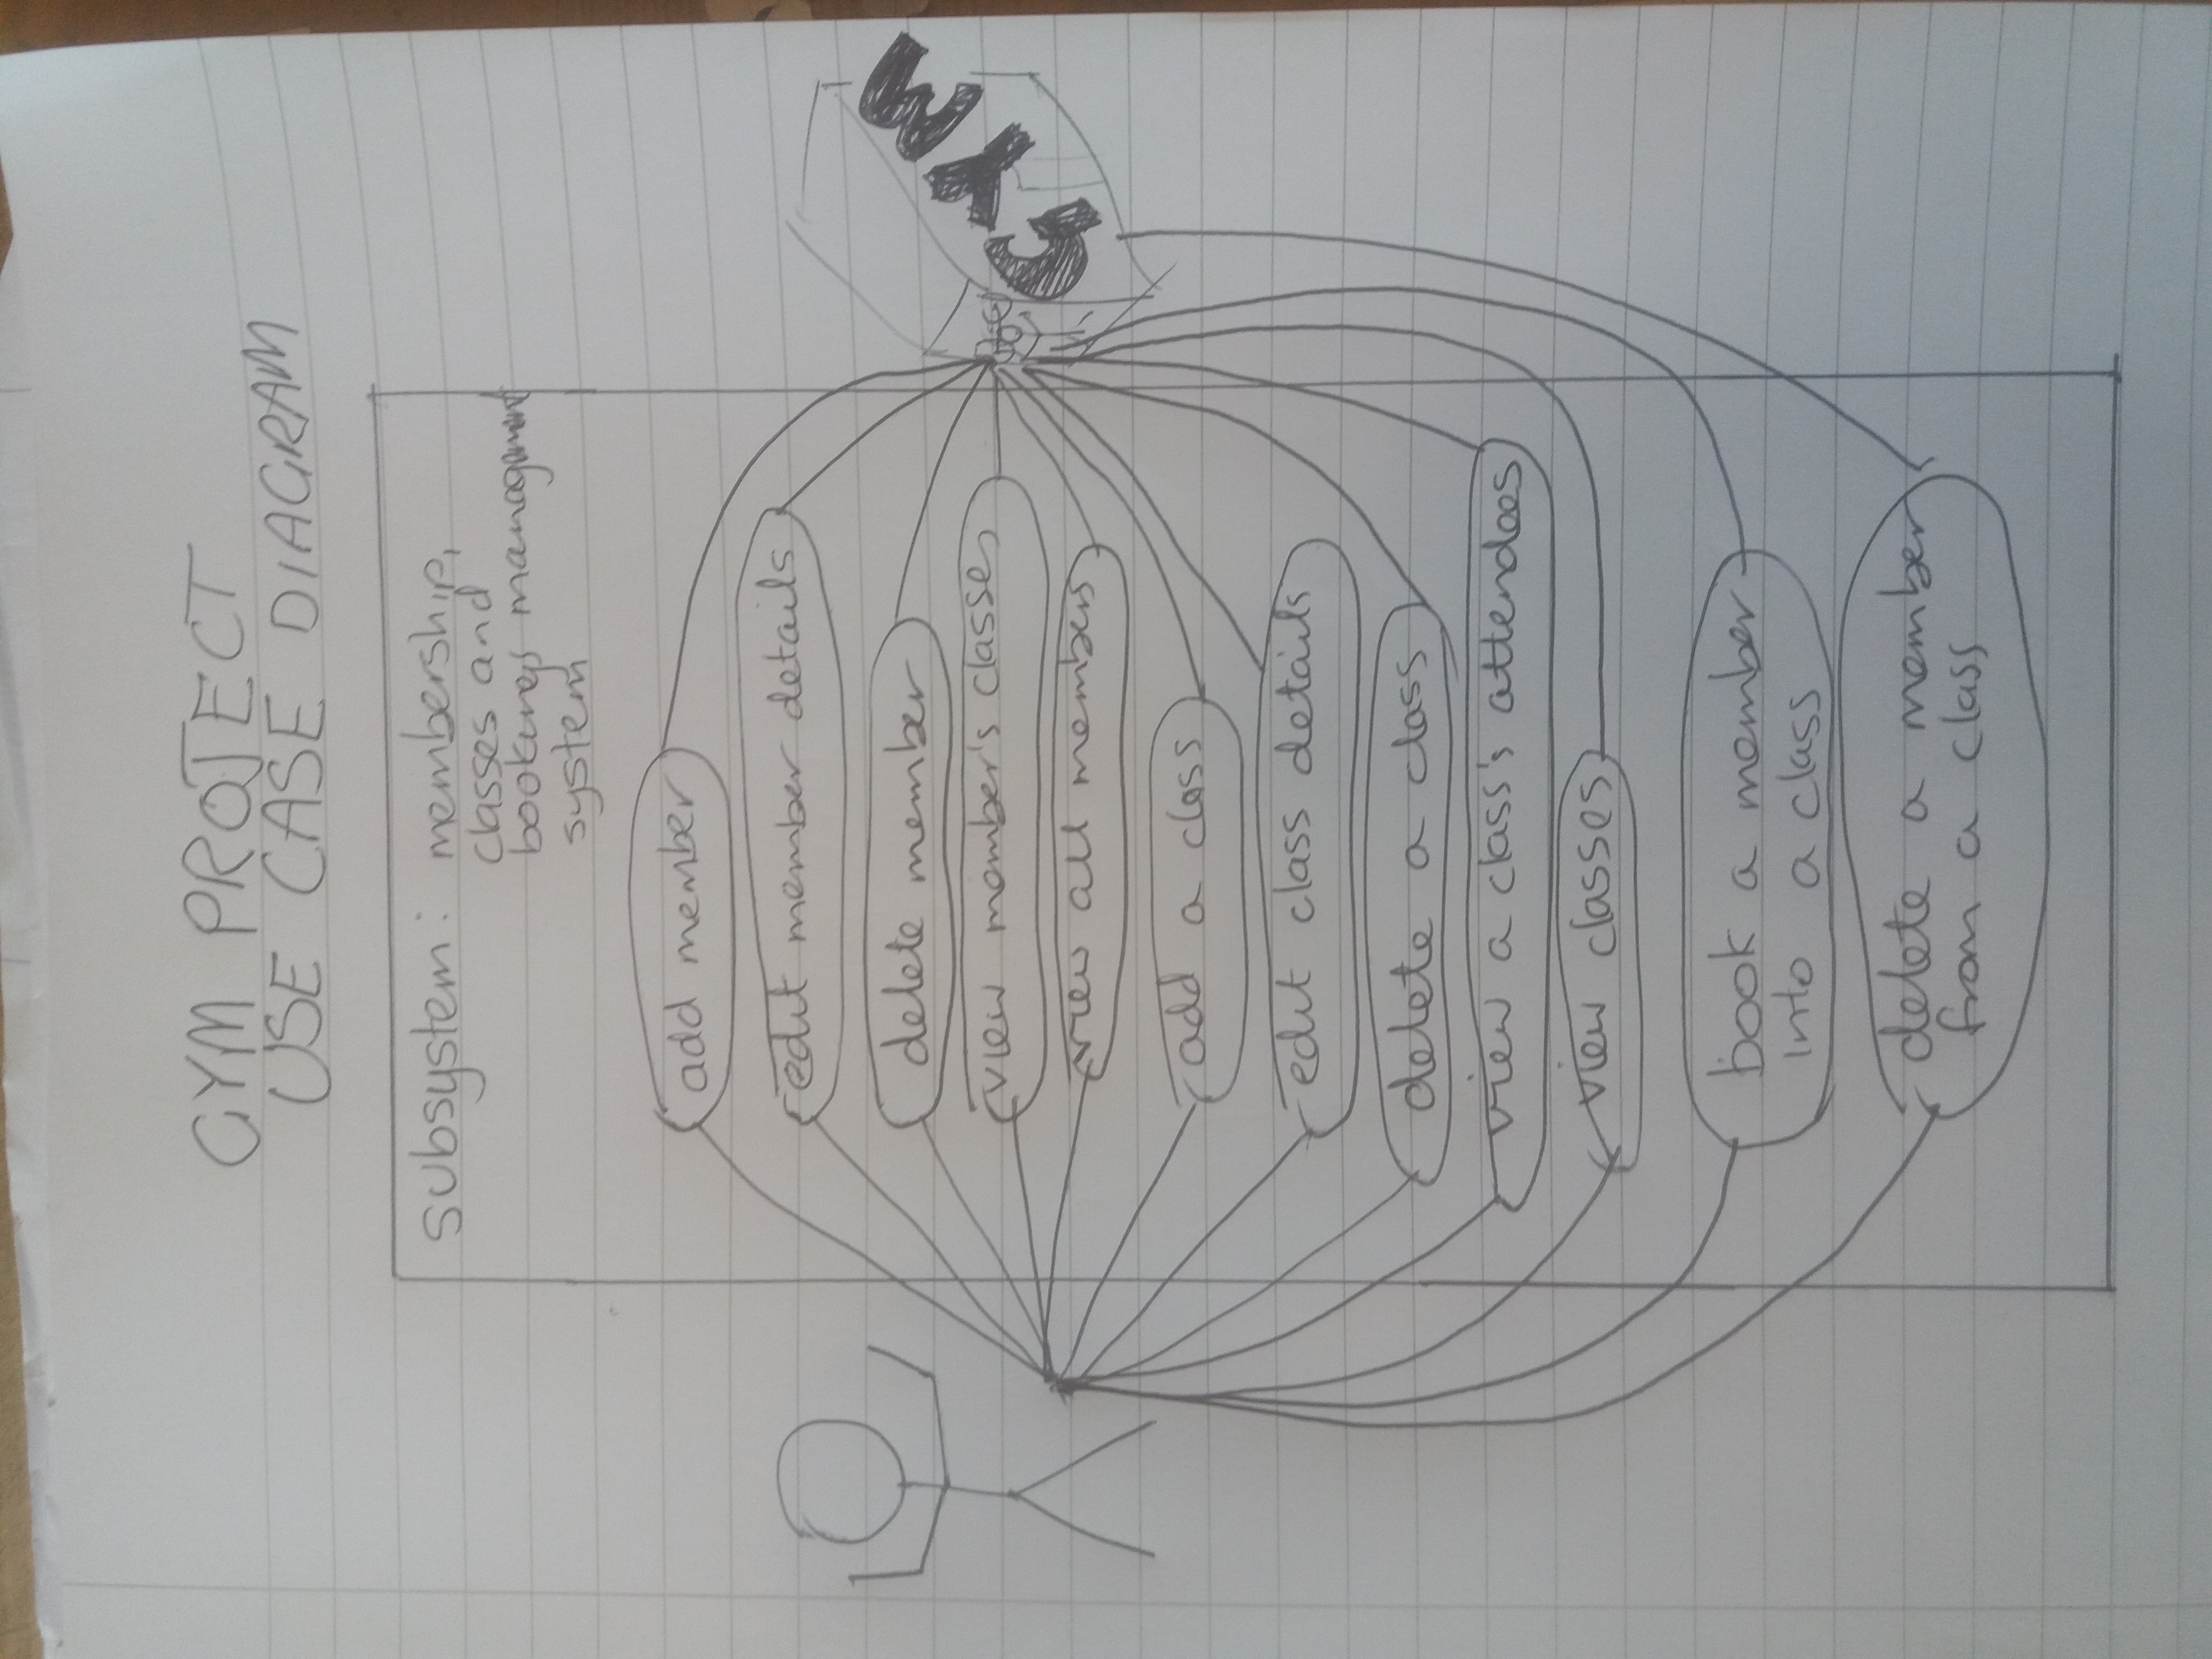 GYM PROJECT
USE CASE DIAGRAM
subsystem: membership,
classes and
bookings management
system
add member
edit member details
delete member
view member's classes
view all members
add a class
edit class details
delete a class
view a class's attendees
view classes
book a member
into a class
delete a member
from a class
GYM